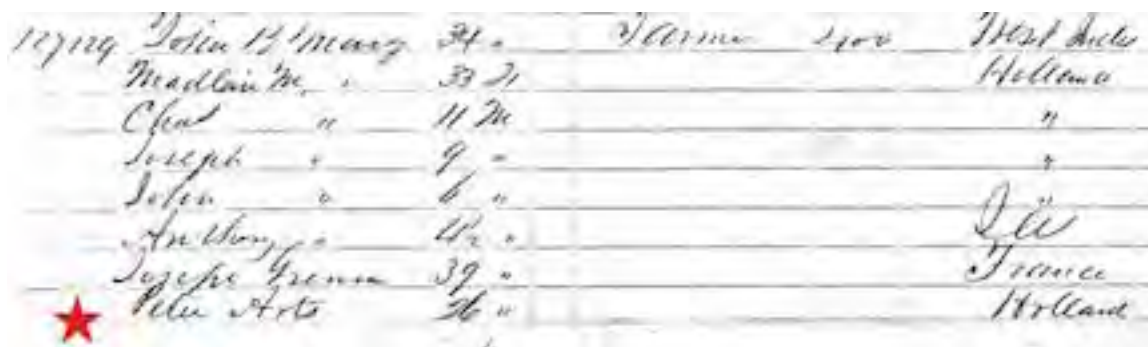 127 129 John B Marey 34 " Farmer 400 West Indies
Madlain M, " 33 F Holland
Chas " 11 M "
Joseph " 9 " "
John " 6 "
Anthony " "
Joseph 39 " France
Peter Arts 26 " Holland